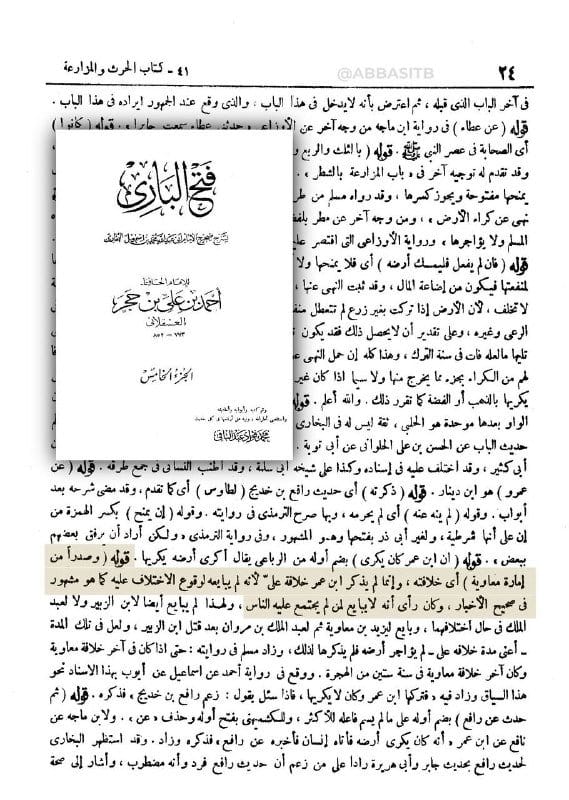 ٤١ - كتاب الحرث والمزارعة
@ABBASITB
٢٤
فى آخر الباب الذى قبله ، ثم اعترض بأنه لايدخل فى هذا الباب ، والذى وقع عند الجمهور إيراده فى هذا الباب .
قوله ( عن عطاء ) فى رواية ابن ماجه من وجه آخر عن الأوزاعى
أى الصحابة فى عصر النبى ﷺ . قوله ( بالثلث والربع و
وقد تقدم له توجيه آخر فى « باب المزارعة بالشطر » .
يمنحها مفتوحة ويجوز كسرها ، وقد رواه مسلم من طر
نهى عن كراء الأرض » ، ومن وجه آخر عن مطر بلفظ
المسلم ولا يؤاجرها » ورواية الأوزاعى التى اقتصر علي
قوله ( فان لم يفعل فليمسك أرضه ) أى فلا يمنحها ولا
لمنفعتها فيكون من إضاعة المال ، وقد ثبت النهى عنها ،
لاتخلف ، لأن الأرض إذا تركت بغير زرع لم تتعطل منف
الرعى وغيره ، وعلى تقدير أن لايحصل ذلك فقد يكون
تليها مالعله فات فى سنة الترك ، وهذا كله إن حمل النهى ع
لهم من الكراء بجزء مما يخرج منها ولا سيما اذا كان غير
يكريها بالذهب أو الفضة كما تقرر ذلك . والله أعلم .
الواو بعدها موحدة هو الحلبى ، ثقة ليس له فى البخارى
حديث الباب عن الحسن بن على الحلوانى عن أبى توبة .
أبى كثير ، وقد اختلف عليه فى إسناده وكذا على شيخه أبى سلمة ، وقد أطنب النسائى فى جمع طرقه . قوله ( عن
عمرو ) هو ابن دينار . قوله ( ذكرته ) أى حديث رافع بن خديج ( لطاوس ) أى كما تقدم ، وقد مضى شرحه بعد
أبواب . وقوله ( لم ينه عنه ) أى لم يحرمه ، وبها صرح الترمذى فى روايته . وقوله ( إن يمنح ) بكسر الهمزة من
إن على أنها شرطية ، ولغير أبى ذر بفتحها وهو المشهور ، وفى رواية الترمذى « ولكن أراد أن يرفق بعضهم
ببعض » . قوله ( أن ابن عمر كان يكرى ) بضم أوله من الرباعى يقال أكرى أرضه يكريها . قوله ( وصدرا من
إمارة معاوية ) أى خلافته ، وإنما لم يذكر ابن عمر خلافة على لأنه لم يبايعه لوقوع الاختلاف عليه كما هو مشهور
فى صحيح الأخبار ، وكان رأى أنه لايبايع لمن لم يجتمع عليه الناس ، ولهذا لم يبايع أيضا لابن الزبير ولا لعبد
الملك فى حال اختلافهما ، وبايع ليزيد بن معاوية ثم لعبد الملك بن مروان بعد قتل ابن الزبير ، ولعل فى تلك المدة
- أعنى مدة خلافة على - لم يؤاجر أرضه فلم يذكرها لذلك ، وزاد مسلم فى روايته : حتى اذا كان فى آخر خلافة معاوية
وكان آخر خلافة معاوية فى سنة ستين من الهجرة . ووقع فى رواية أحمد عن اسماعيل عن أيوب بهذا الاسناد نحو
هذا السياق وزاد فيه « فتركها ابن عمر وكان لايكريها ، فاذا سئل يقول : زعم رافع بن خديج » فذكره . قوله ( ثم
حدث عن رافع ) بضم أوله على مالم يسم فاعله للأكثر ، وللكشميهنى بفتح أوله وحذف « عن » . ولابن ماجه عن
نافع عن ابن عمر « أنه كان يكرى أرضه فأتاه إنسان فأخبره عن رافع » فذكره وزاد . وقد استظهر البخارى
لحديث رافع بحديث جابر وأبى هريرة رادا على من زعم أن حديث رافع فرد وأنه مضطرب ، وأشار إلى صحة
فتح البارى
للإمام الحافظ
أحمد بن على بن حجر
العسقلانى
٧٧٣ - ٨٥٢
الجزء الخامس
محمد فؤاد عبد الباقى